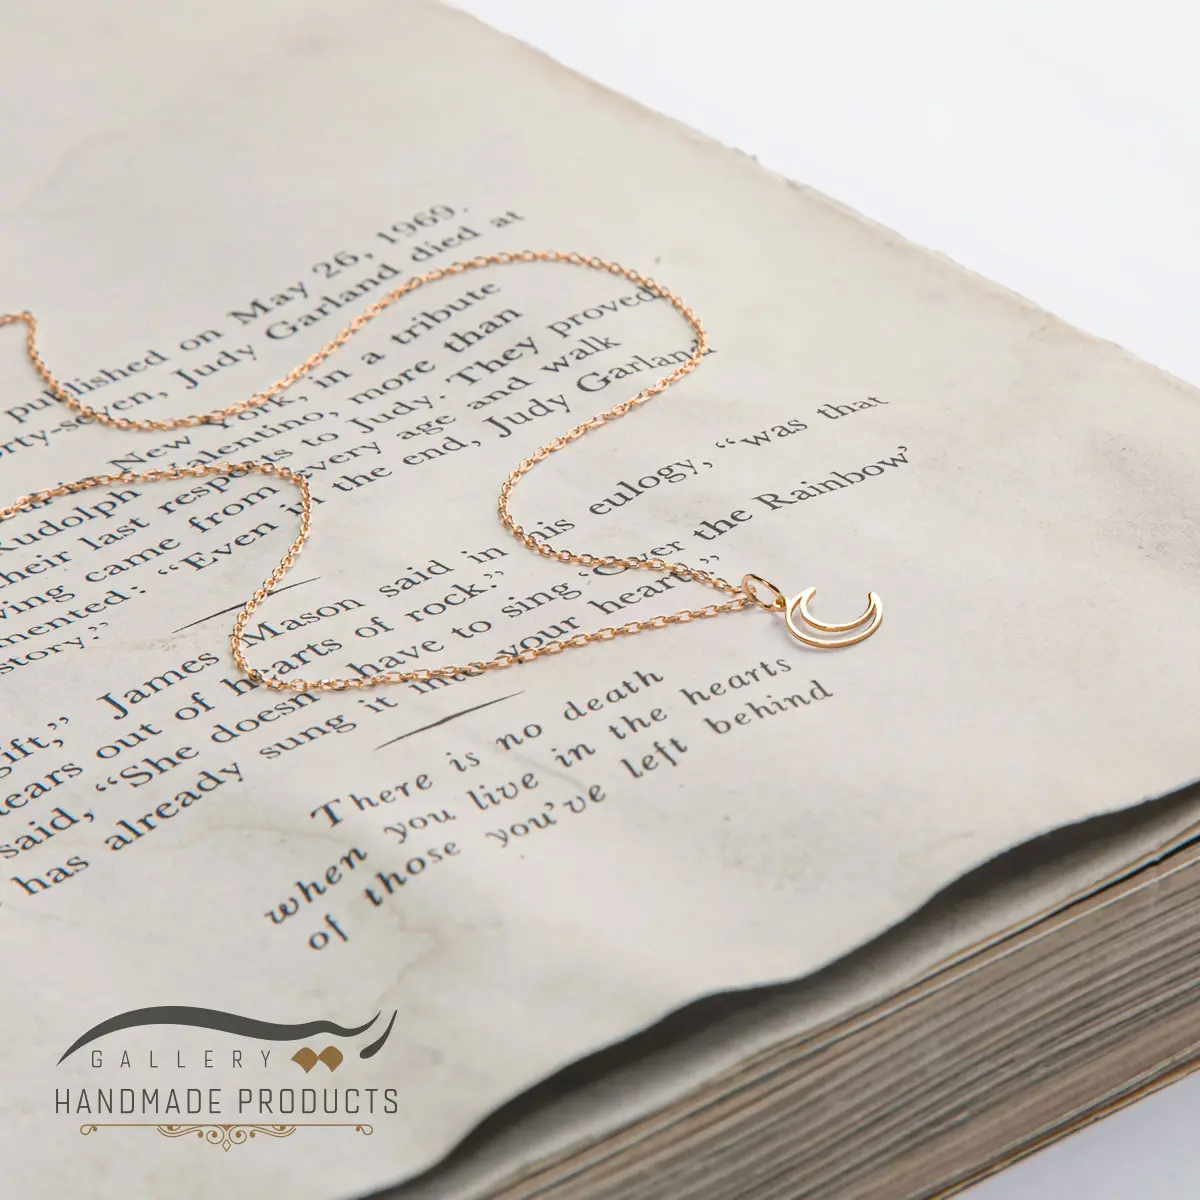 published on May 26, 1969.
orty-seven, Judy Garland died at
New York, in a tribute
Rudolph Valentino, more than
their last respects to Judy. They proved
wing came from every age and walk
mented: “Even in the end, Judy Garland
story.”
James Mason said in his eulogy, “was that
gift,” tears out of hearts of rock.”
said, “She doesn have to sing ‘Over the Rainbow’
has already sung it into your hearts.”
There is no death
when you live in the hearts
of those you’ve left behind
GALLERY
HANDMADE PRODUCTS